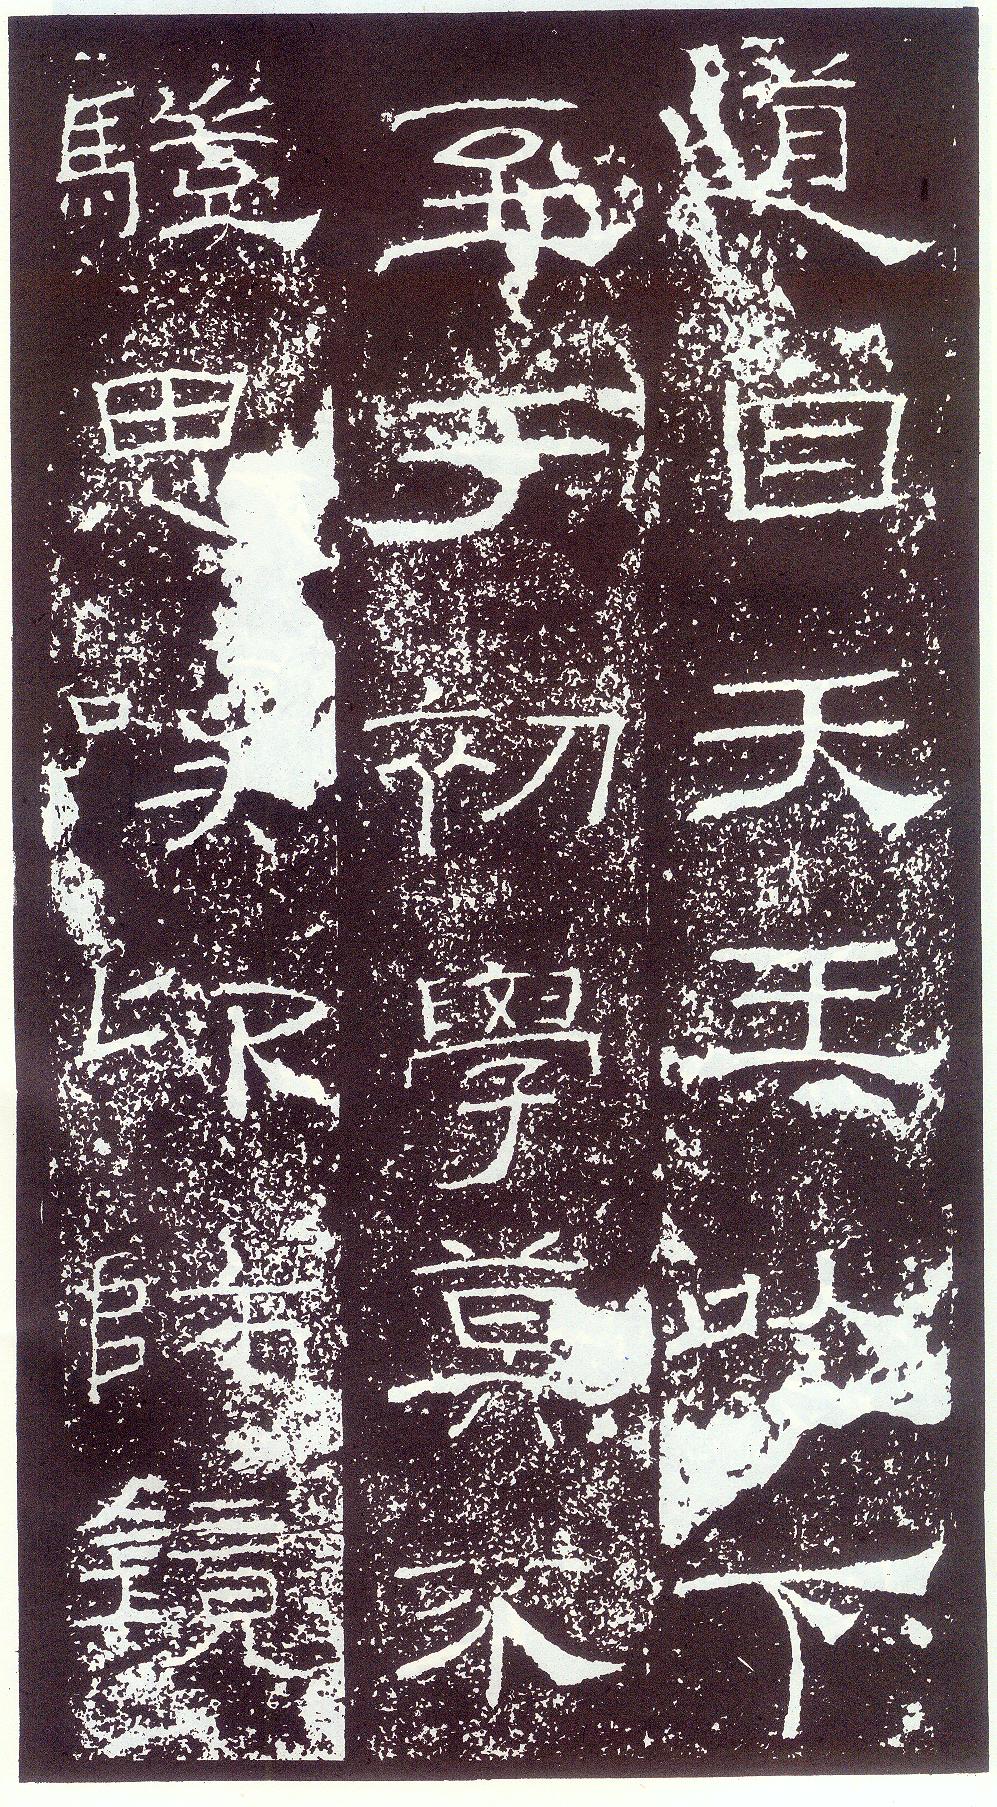 道自天王以下
至于初學莫不
思嘆卬師鏡